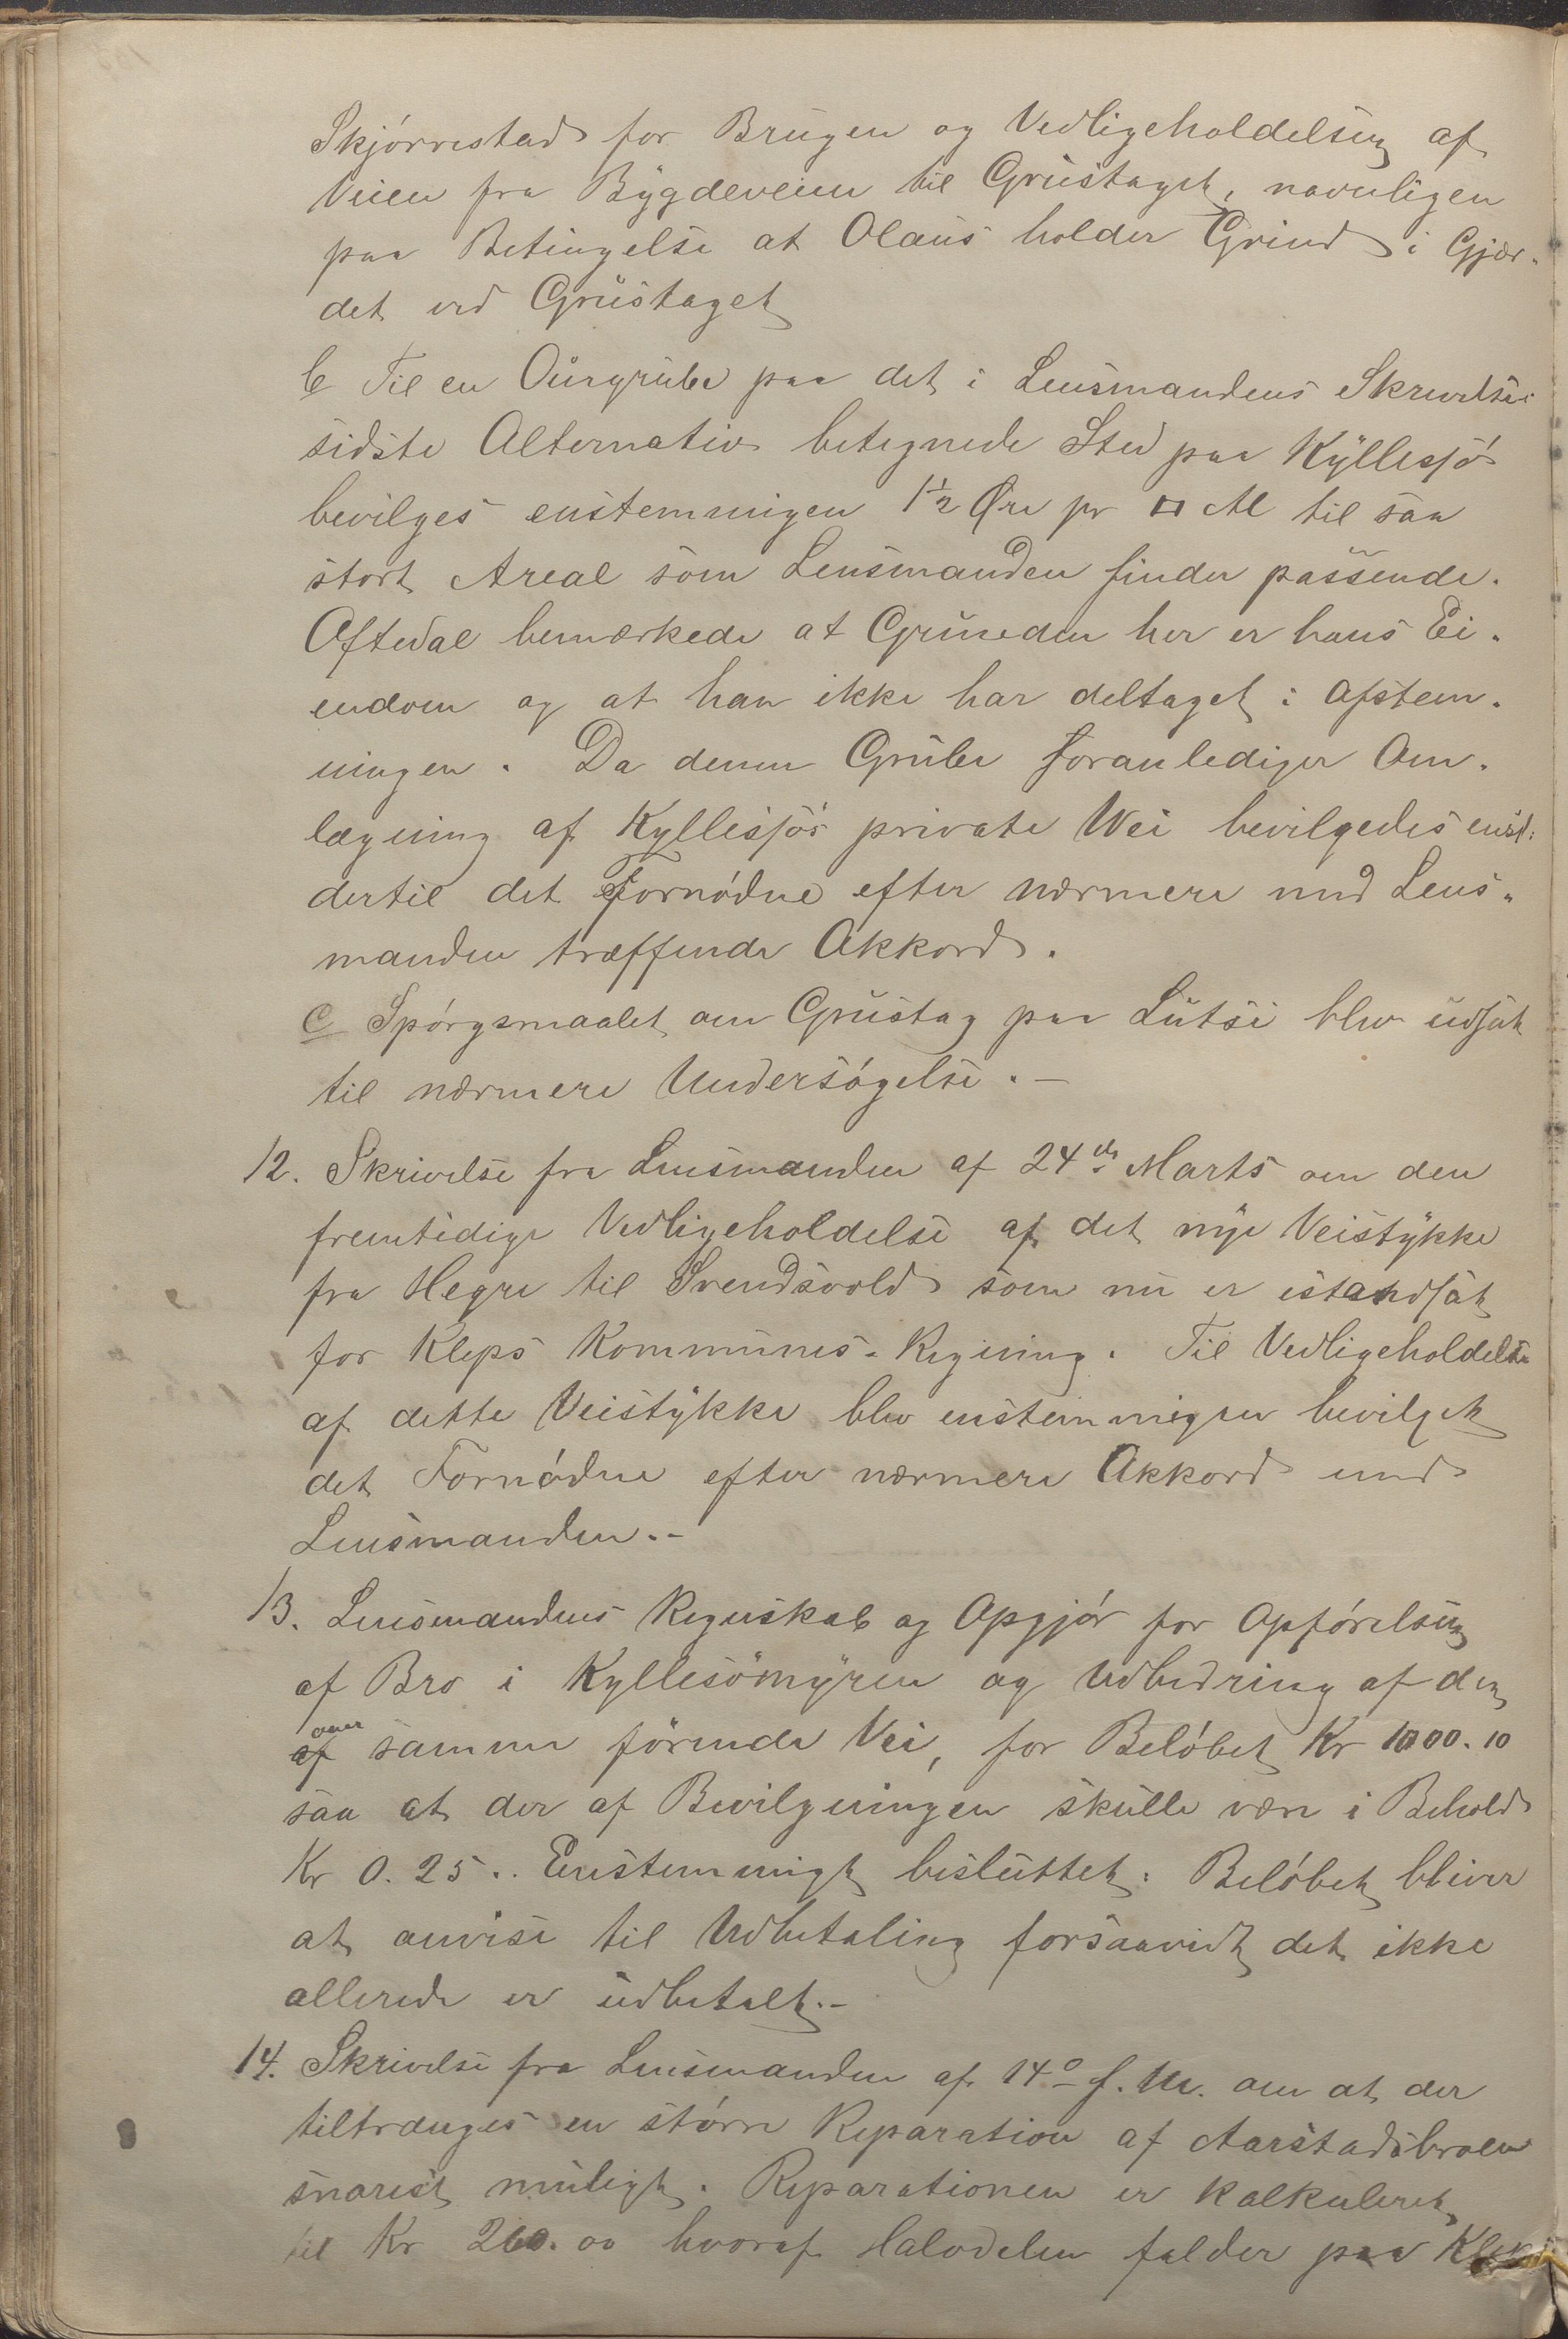 Skjørrestad for Brugen og Vedligeholdelsen af
Veien fra Bygdeveien til Grustaget, navnligen
paa Betingelse at Olaus holder Grind i Gjær-
det ved Grustaget
b Til en Ourgrube paa det i Lensmandens Skrivelse i
sidste Alternativ betegnede Sted paa Kyllesjø
bevilges enstemmigen 1½ Øre pr □ Al til saa
stort Areal som Lensmanden finder passende.
Aftedal bemærkede at Grunden her er hans Ei-
endom og at han ikke har deltaget i Afstem-
ningen. Da denne Grube foranlediger Om-
lægning af Kyllesjøs private Vei bevilgedes enst:
dertil det Fornødne efter nærmere med Lens-
manden træffende Akkord.
c Spørgsmaalet om Grustag paa Lutsi blev udsat
til nærmere Undersøgelse. –
12. Skrivelse fra Lensmanden af 24de Marts om den
fremtidige Vedligeholdelse af det nye Veistykke
fra Hegre til Svendsvold som nu er istandsat
for Kleps Kommunes Regning. Til Vedligeholdelse
af dette Veistykke blev enstemmigen bevilget
det Fornødne efter nærmere Akkord med
Lensmanden. –
13. Lensmandens Regnskab og Opgjør for Opførelsen
af Bro i Kyllesømyren og Udbedring af den
over
af samme førende Vei, for Beløbet Kr 1000.10
saa at der af Bevilgningen skulle være i Behold
Kr 0.25.. Enstemmigt besluttet: Beløbet bliver
at anvise til Udbetaling forsaavidt det ikke
allerede er udbetalt. –
14. Skrivelse fra Lensmanden af 14º f. M. om at der
tiltrænges en større Reparation af Aarstadsbroen
snarest muligt. Reparationen er kalkuleret
til Kr 260.00 hvoraf Halvdelen falder paa Klep